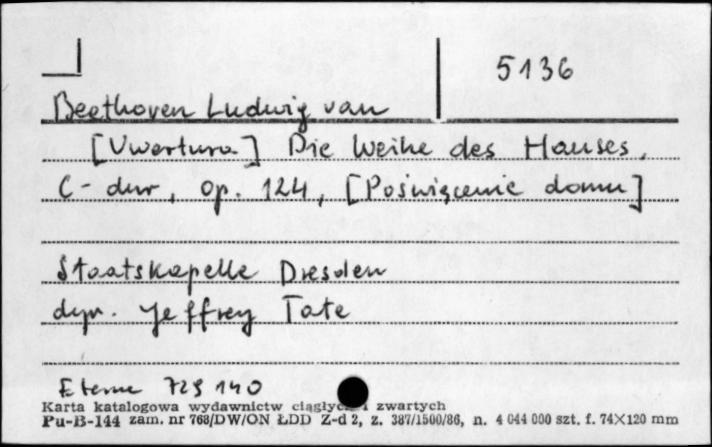 5136
Beethoven Ludwig van
[Uwertura] Die Weihe des Hauses,
C-dur, op. 124, [Poświęcenie domu]
Staatskapelle Dresden
dyr. Jeffrey Tate
Eterna 729 140
Karta katalogowa wydawnictw ciągłych i zwartych
Pu-B-144 zam. nr 768/DW/ON ŁDD Z-d 2, z. 387/1500/86, n. 4 044 000 szt. f. 74×120 mm